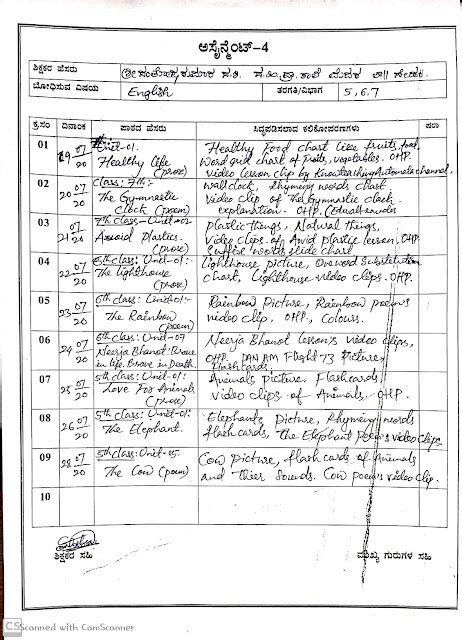 ಅಸೈನ್ಮೆಂಟ್-4
ಶಿಕ್ಷಕರ ಹೆಸರು
ಬೋಧಿಸುವ ವಿಷಯ English ತರಗತಿ/ವಿಭಾಗ 5,6,7
ಕ್ರ.ಸಂ ದಿನಾಂಕ ಪಾಠದ ಹೆಸರು ಸಿದ್ಧಪಡಿಸಲಾದ ಕಲಿಕೋಪಕರಣಗಳು ಷರಾ
01 19 07 20 Unit-01. Healthy Food chart like fruits, food,
Healthy life word grid chart of Fruits, vegetables. OHP.
(prose) Video lesson clip by
02 20 07 20 Class: 7th:- Wall clock, Rhyming words chart.
The Gymnastic Video clip of The Gymnastic clock
Clock (poem) explanation. OHP.
03 21 07 20 7th class-Unit-02 Plastic things, Natural things,
Avoid Plastics. Video clips of Avoid plastic lesson, OHP
(prose) words slide chart
04 22 07 20 6th class:-Unit-01:- Lighthouse picture, One word Substitution
The lighthouse chart, Lighthouse video clips. OHP.
(prose)
05 23 07 20 6th class: Unit-01:- Rainbow Picture, Rainbow poem's
The Rainbow video clip, OHP, Colours.
(poem)
06 24 07 20 6th class: Unit-07 Neerja Bhanot lesson's video clips,
Neerja Bhanot: Brave OHP. PAN AM Flight 73 Picture,
in life, Brave in Death. Flashcards.
07 25 07 20 5th class: Unit-01: Animals picture, Flashcards,
Love For Animals video clips of Animals, OHP.
(prose)
08 26 07 20 5th class: Unit-01: Elephants Picture, Rhyming words
The Elephant. flash cards, The Elephant Poem's video Clips.
09 28 07 20 5th class: Unit-05. Cow Picture, flash cards of Animals
The Cow (poem) and their Sounds. Cow poem's video clip.
10
ಶಿಕ್ಷಕರ ಸಹಿ ಮುಖ್ಯ ಗುರುಗಳ ಸಹಿ
CS Scanned with CamScanner